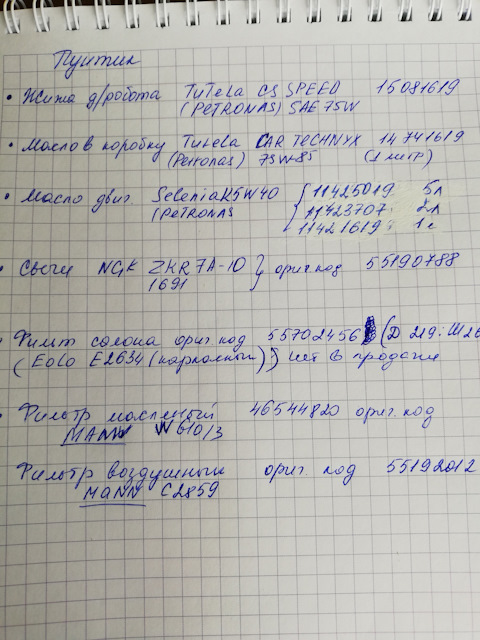 Пунтик
• Жижа д/робота TuTeLa CS SPEED 15081619
(PETRONAS) SAE 75W
• Масло в коробку Tutela CAR TECHNYX 14741619
(Petronas) 75W-85 (1 литр)
• Масло двиг. Selenia K 5W40 11425019 5л
(PETRONAS 11423707 2л
11421619 1л
• Свечи NGK ZKR 7A-10 } ориг. код 55190788
1691
Фильт салона ориг. код 55702456 (Д 219: Ш 26
(EoLo E2634 (карманный)) нет в продаже
• Фильтр масленый 46544820 ориг. код
MANN W 610/3
Фильтр воздушный ориг. код 55192012
MANN C2859